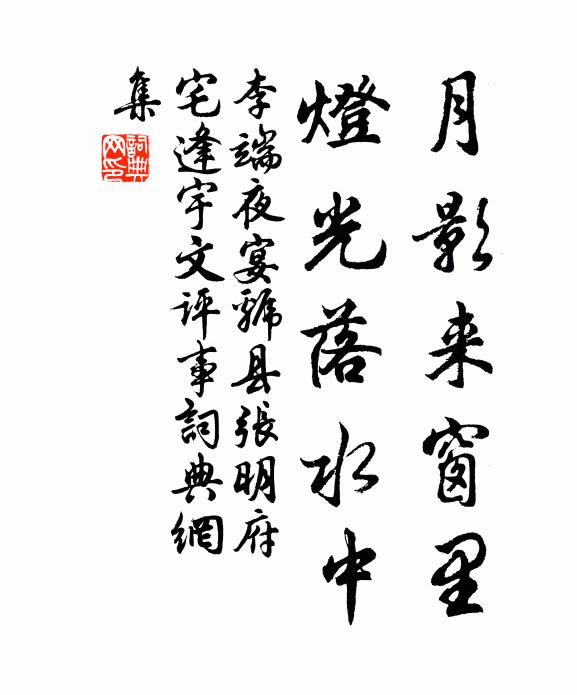 月影来窗里
燈光落水中
李端夜宴虢县張明府
宅逢宇文評事詞典網
集
詞典
网印